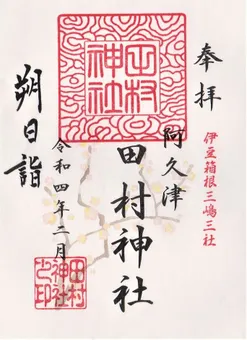 奉拝
伊豆箱根三嶋三社
阿久津
田村神社
田村神社
令和四年二月
朔日詣
田村神社之印